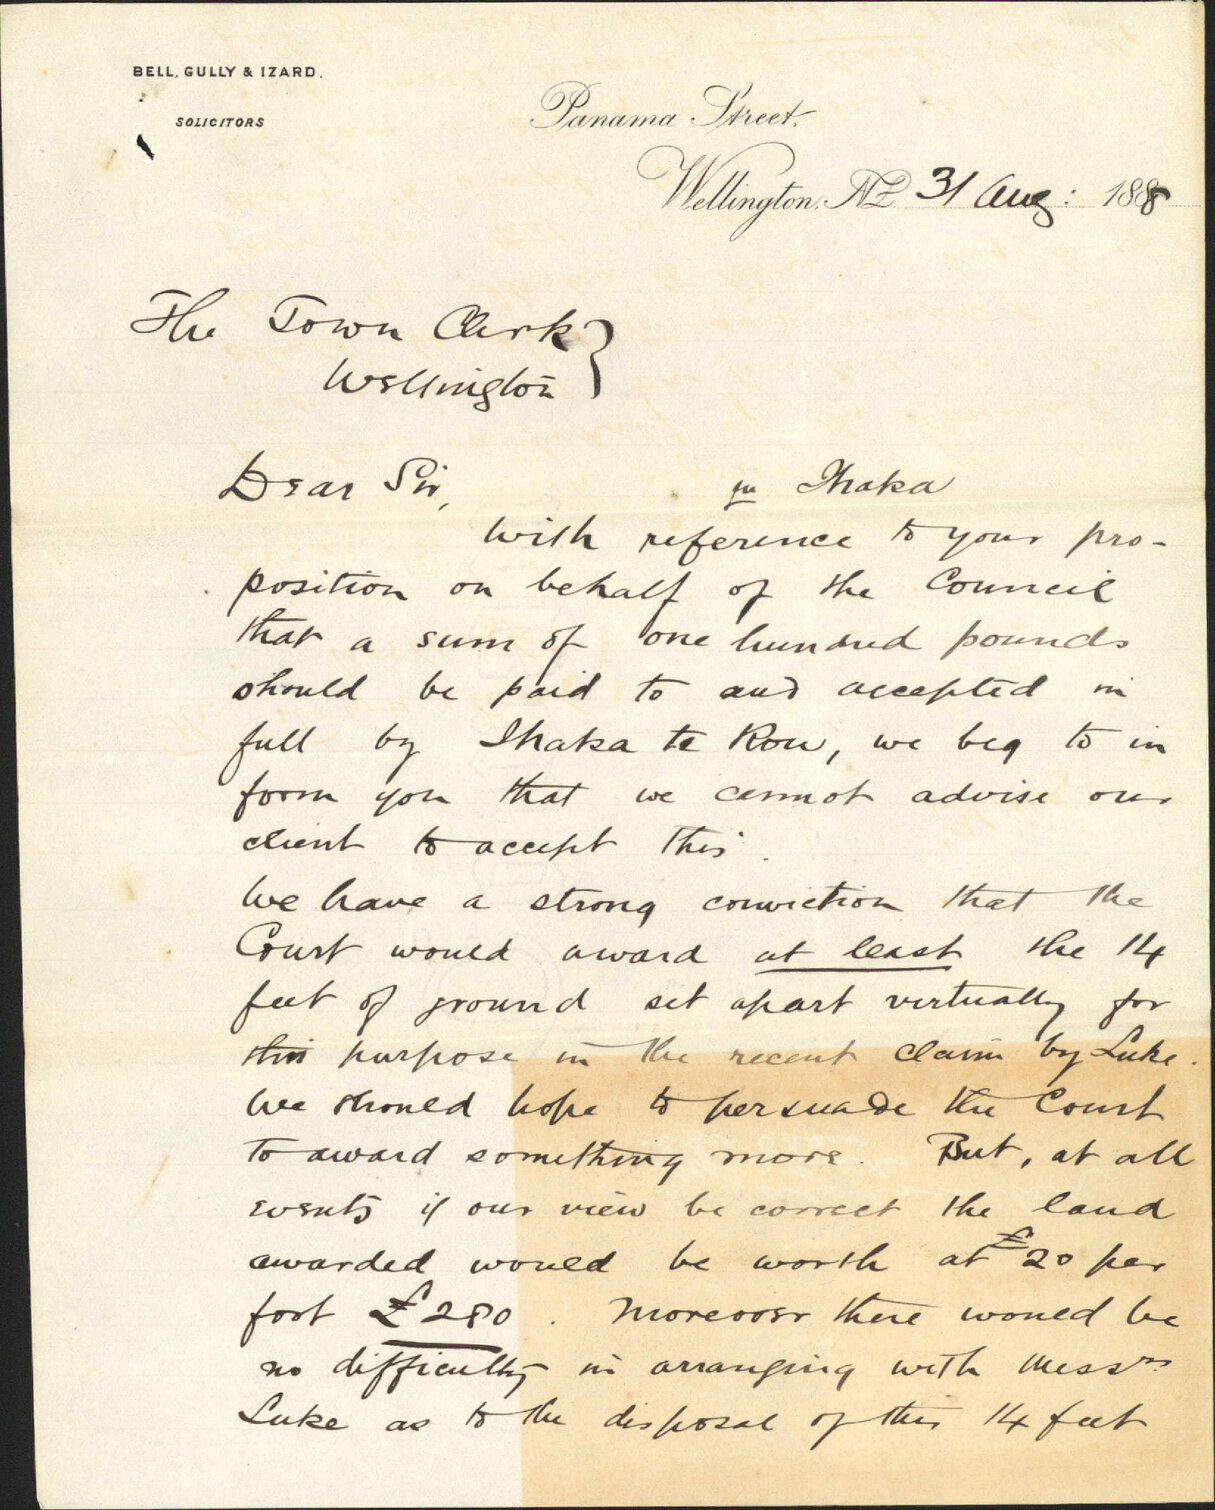 BELL, GULLY & IZARD.
SOLICITORS
Panama Street.
Wellington, NZ 31 Aug: 1888
The Town Clerk }
Wellington
Dear Sir,
re Ihaka
With reference to your pro-
position on behalf of the Council
that a sum of one hundred pounds
should be paid to and accepted in
full by Ihaka te Rou, we beg to in
form you that we cannot advise our
client to accept this.
We have a strong conviction that the
Court would award at least the 14
feet of ground set apart virtually for
this purpose in the recent claim by Luke.
We should hope to persuade the Court
to award something more. But, at all
events if our view be correct the land
awarded would be worth at £20 per
foot £280. Moreover there would be
no difficulty in arranging with Messrs
Luke as to the disposal of this 14 feet